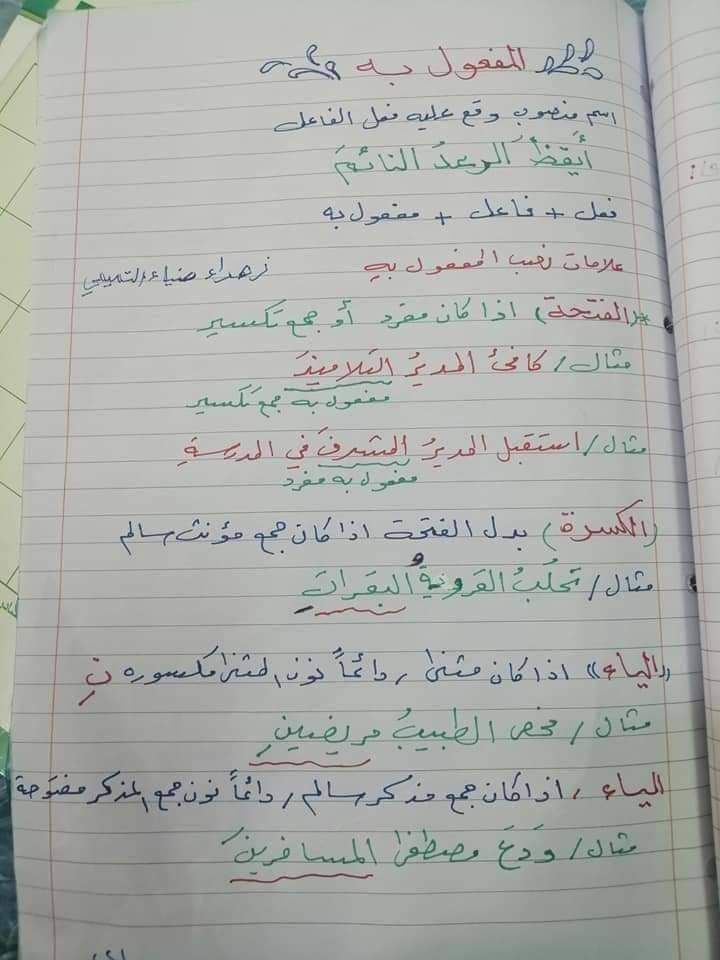 المفعول به
اسم منصوب وقع عليه فعل الفاعل
أيقظَ الرعدُ النائمَ
فعل + فاعل + مفعول به
علامات نصب المفعول بهِ
زهراء ضياء التميمي
*(الفتحة) اذا كان مفرد أو جمع تكسير
مثال/ كافئ المديرُ التلاميذَ
مفعول به جمع تكسير
مثال/ استقبل المديرُ المشرفَ في المدرسةِ
مفعول به مفرد
(الكسرة) بدل الفتحة اذا كان جمع مؤنث سالم
مثال/ تحلُبُ القرويةُ البقراتِ
((الياء)) اذا كان مثنى / دائماً نون المثنى مكسوره نِ
مثال/ فحص الطبيبُ مريضينِ
الياء / اذا كان جمع مذكر سالم / دائماً نون جمع المذكر مفتوحة
مثال/ ودَعَ مصطفى المسافرينَ